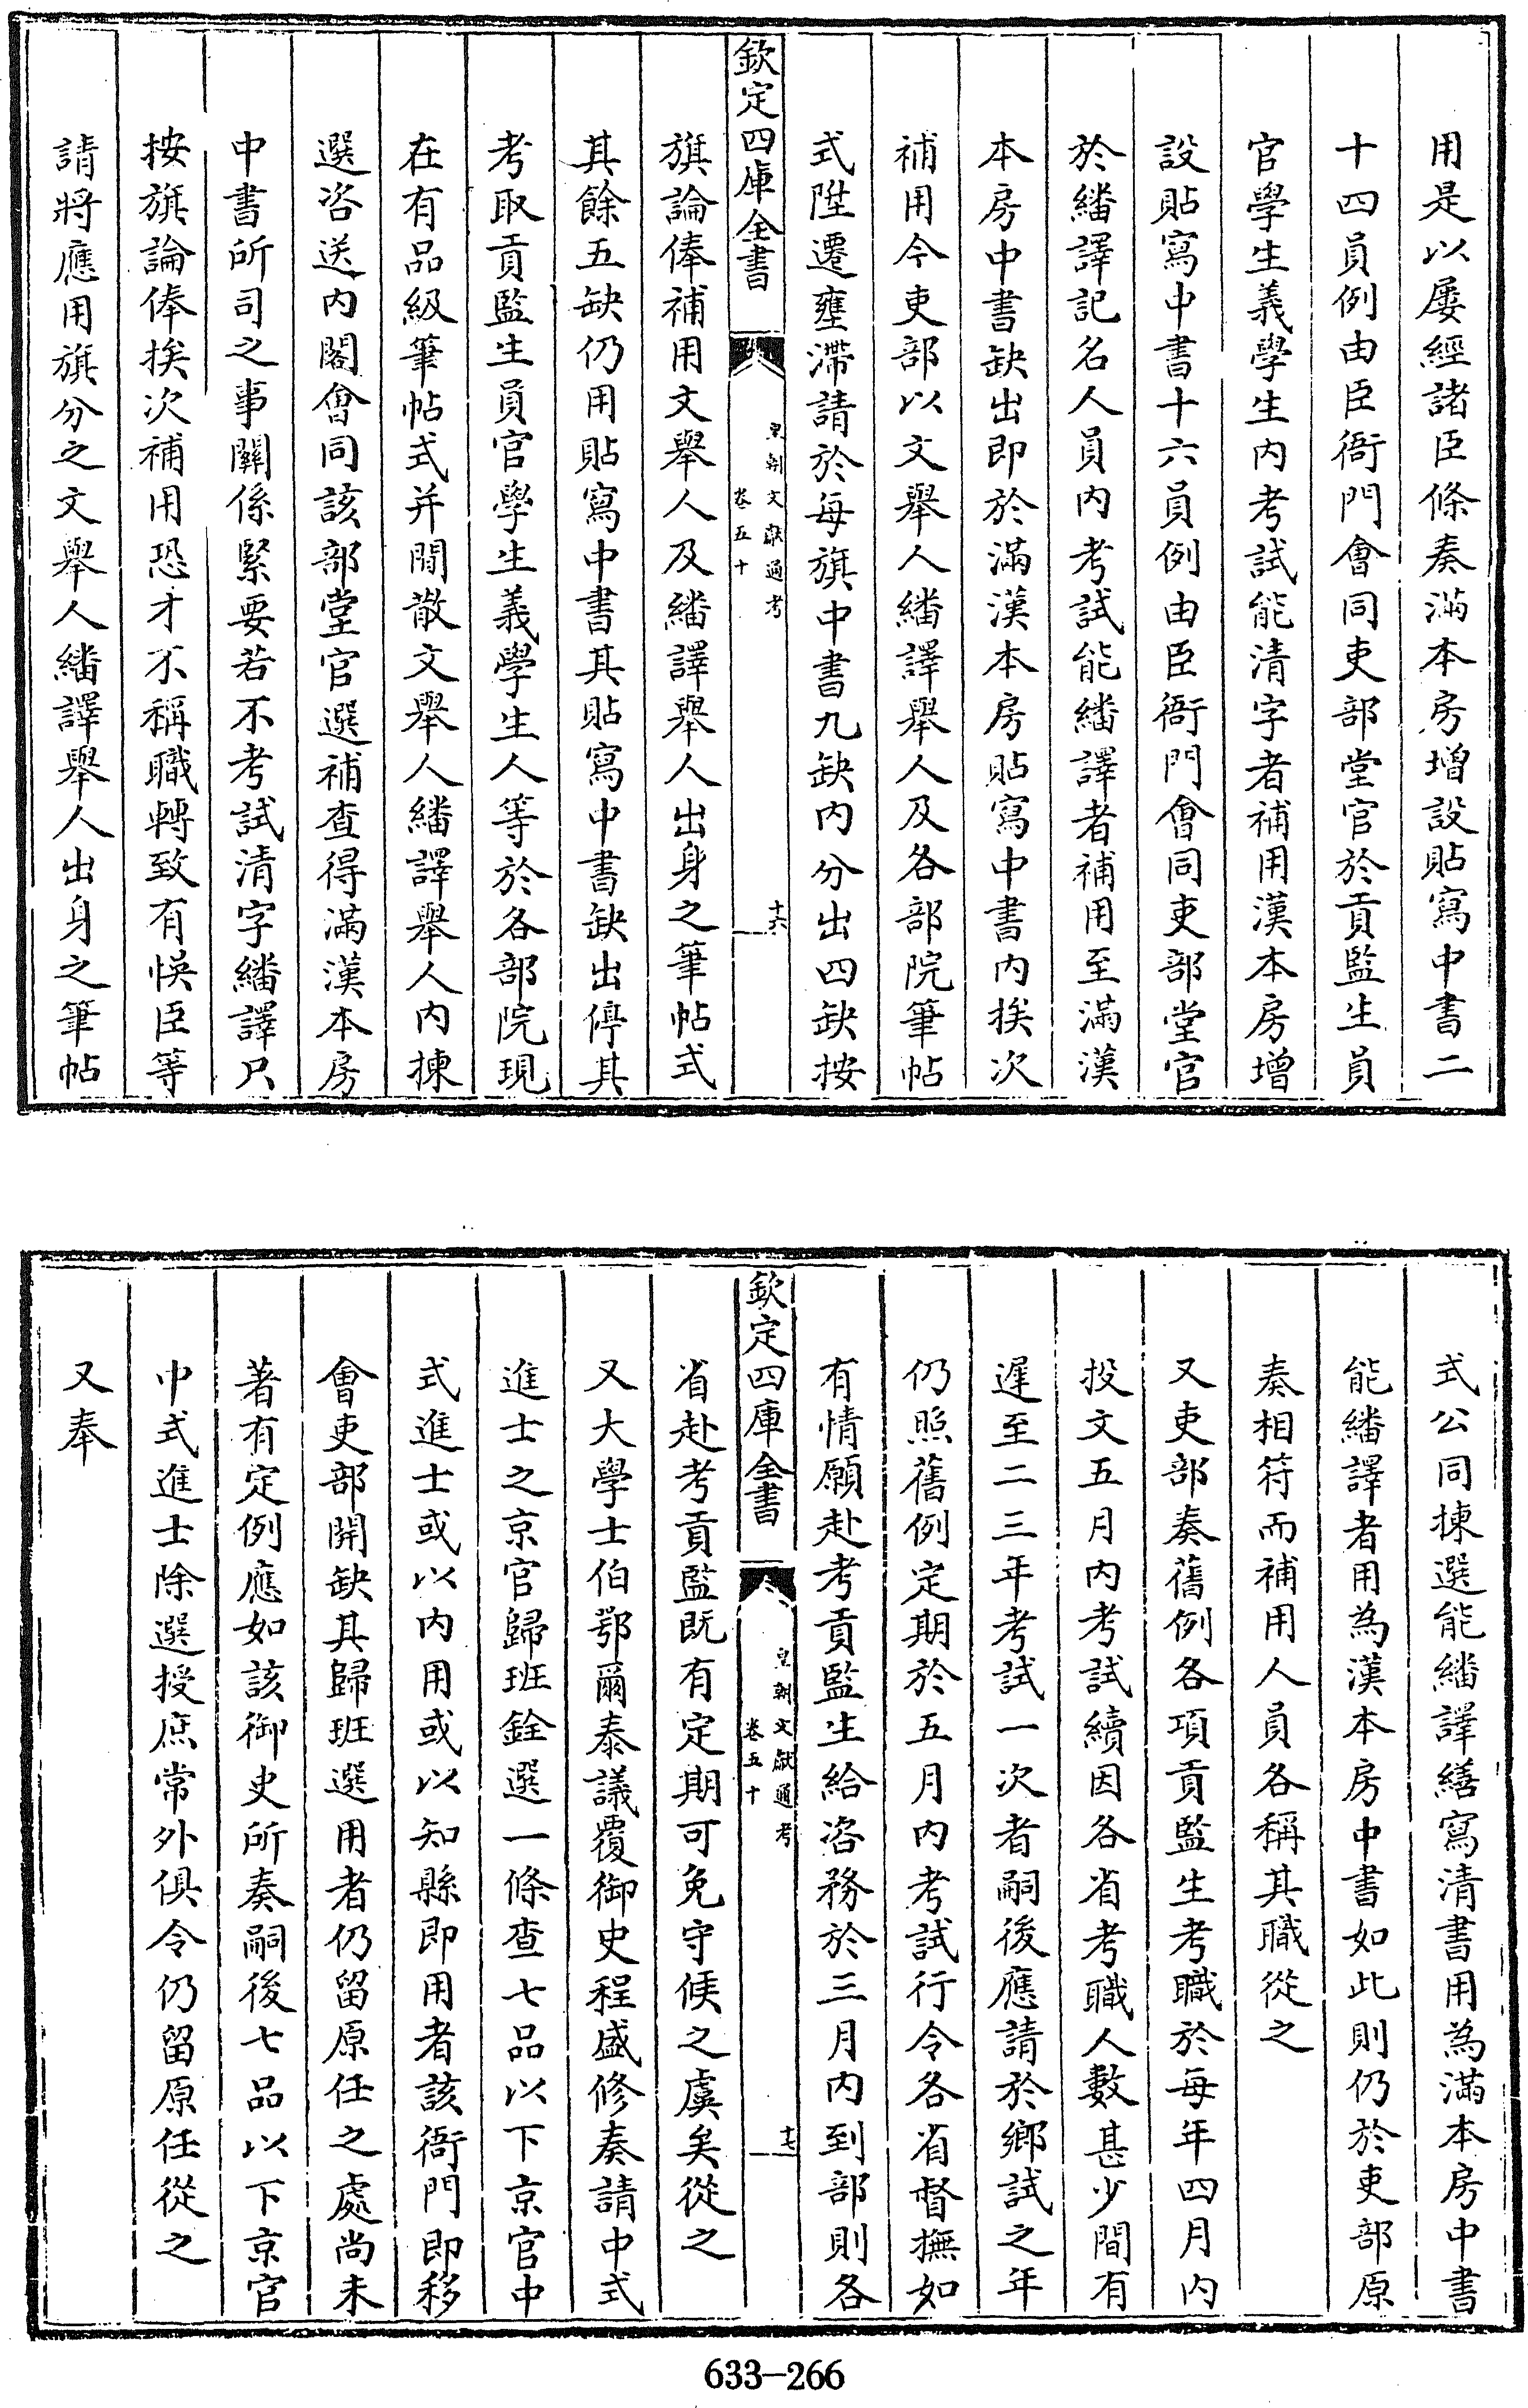 用是以屢經諸臣條奏滿本房增設貼寫中書二
十四員例由臣衙門會同吏部堂官於貢監生員
官學生義學生內考試能清字者補用漢本房增
設貼寫中書十六員例由臣衙門會同吏部堂官
於繙譯記名人員內考試能繙譯者補用至滿漢
本房中書缺出即於滿漢本房貼寫中書內挨次
補用今吏部以文舉人繙譯舉人及各部院筆帖
式陞遷壅滯請於每旗中書九缺內分出四缺按
欽定四庫全書
皇朝文獻通考
卷五十
十六
旗論俸補用文舉人及繙譯舉人出身之筆帖式
其餘五缺仍用貼寫中書其貼寫中書缺出停其
考取貢監生員官學生義學生人等於各部院現
在有品級筆帖式并閒散文舉人繙譯舉人內揀
選咨送內閣會同該部堂官選補查得滿漢本房
中書所司之事關係緊要若不考試清字繙譯只
按旗論俸挨次補用恐才不稱職轉致有悞臣等
請將應用旗分之文舉人繙譯舉人出身之筆帖
式公同揀選能繙譯繕寫清書用為滿本房中書
能繙譯者用為漢本房中書如此則仍於吏部原
奏相符而補用人員各稱其職從之
又吏部奏舊例各項貢監生考職於每年四月內
投文五月內考試續因各省考職人數甚少間有
遲至二三年考試一次者嗣後應請於鄉試之年
仍照舊例定期於五月內考試行令各省督撫如
有情願赴考貢監生給咨務於三月內到部則各
欽定四庫全書
皇朝文獻通考
卷五十
十七
省赴考貢監既有定期可免守候之虞矣從之
又大學士伯鄂爾泰議覆御史程盛修奏請中式
進士之京官歸班銓選一條查七品以下京官中
式進士或以內用或以知縣即用者該衙門即移
會吏部開缺其歸班選用者仍留原任之處尚未
著有定例應如該御史所奏嗣後七品以下京官
中式進士除選授庶常外俱令仍留原任從之
又奉
633-266